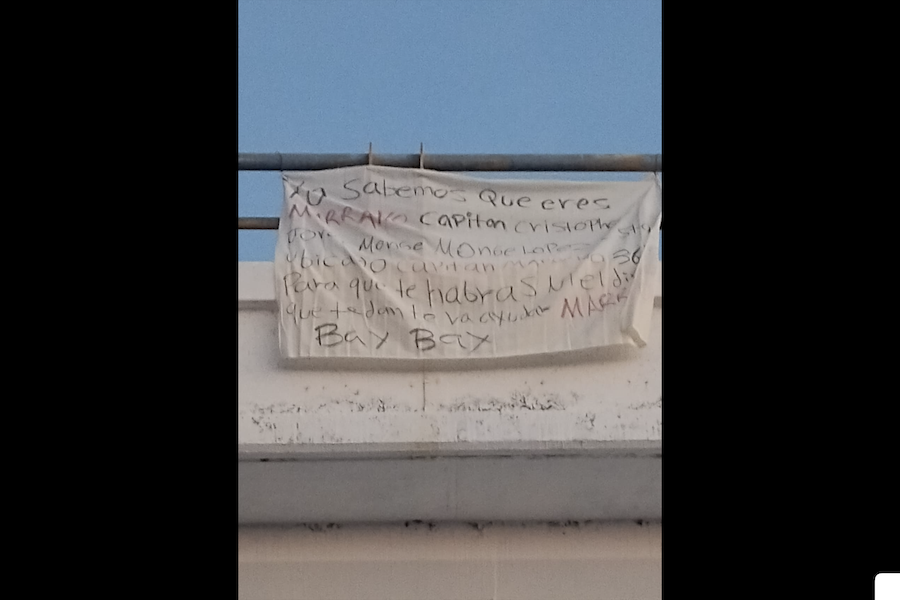 Ya Sabemos Que eres
MARRANO Capitan cristofher
Jorge Monge Monge Lopez
ubicado capitan 36
Para que te habras Ni el din
que te dan te va ayudar MARR
Bay Bay